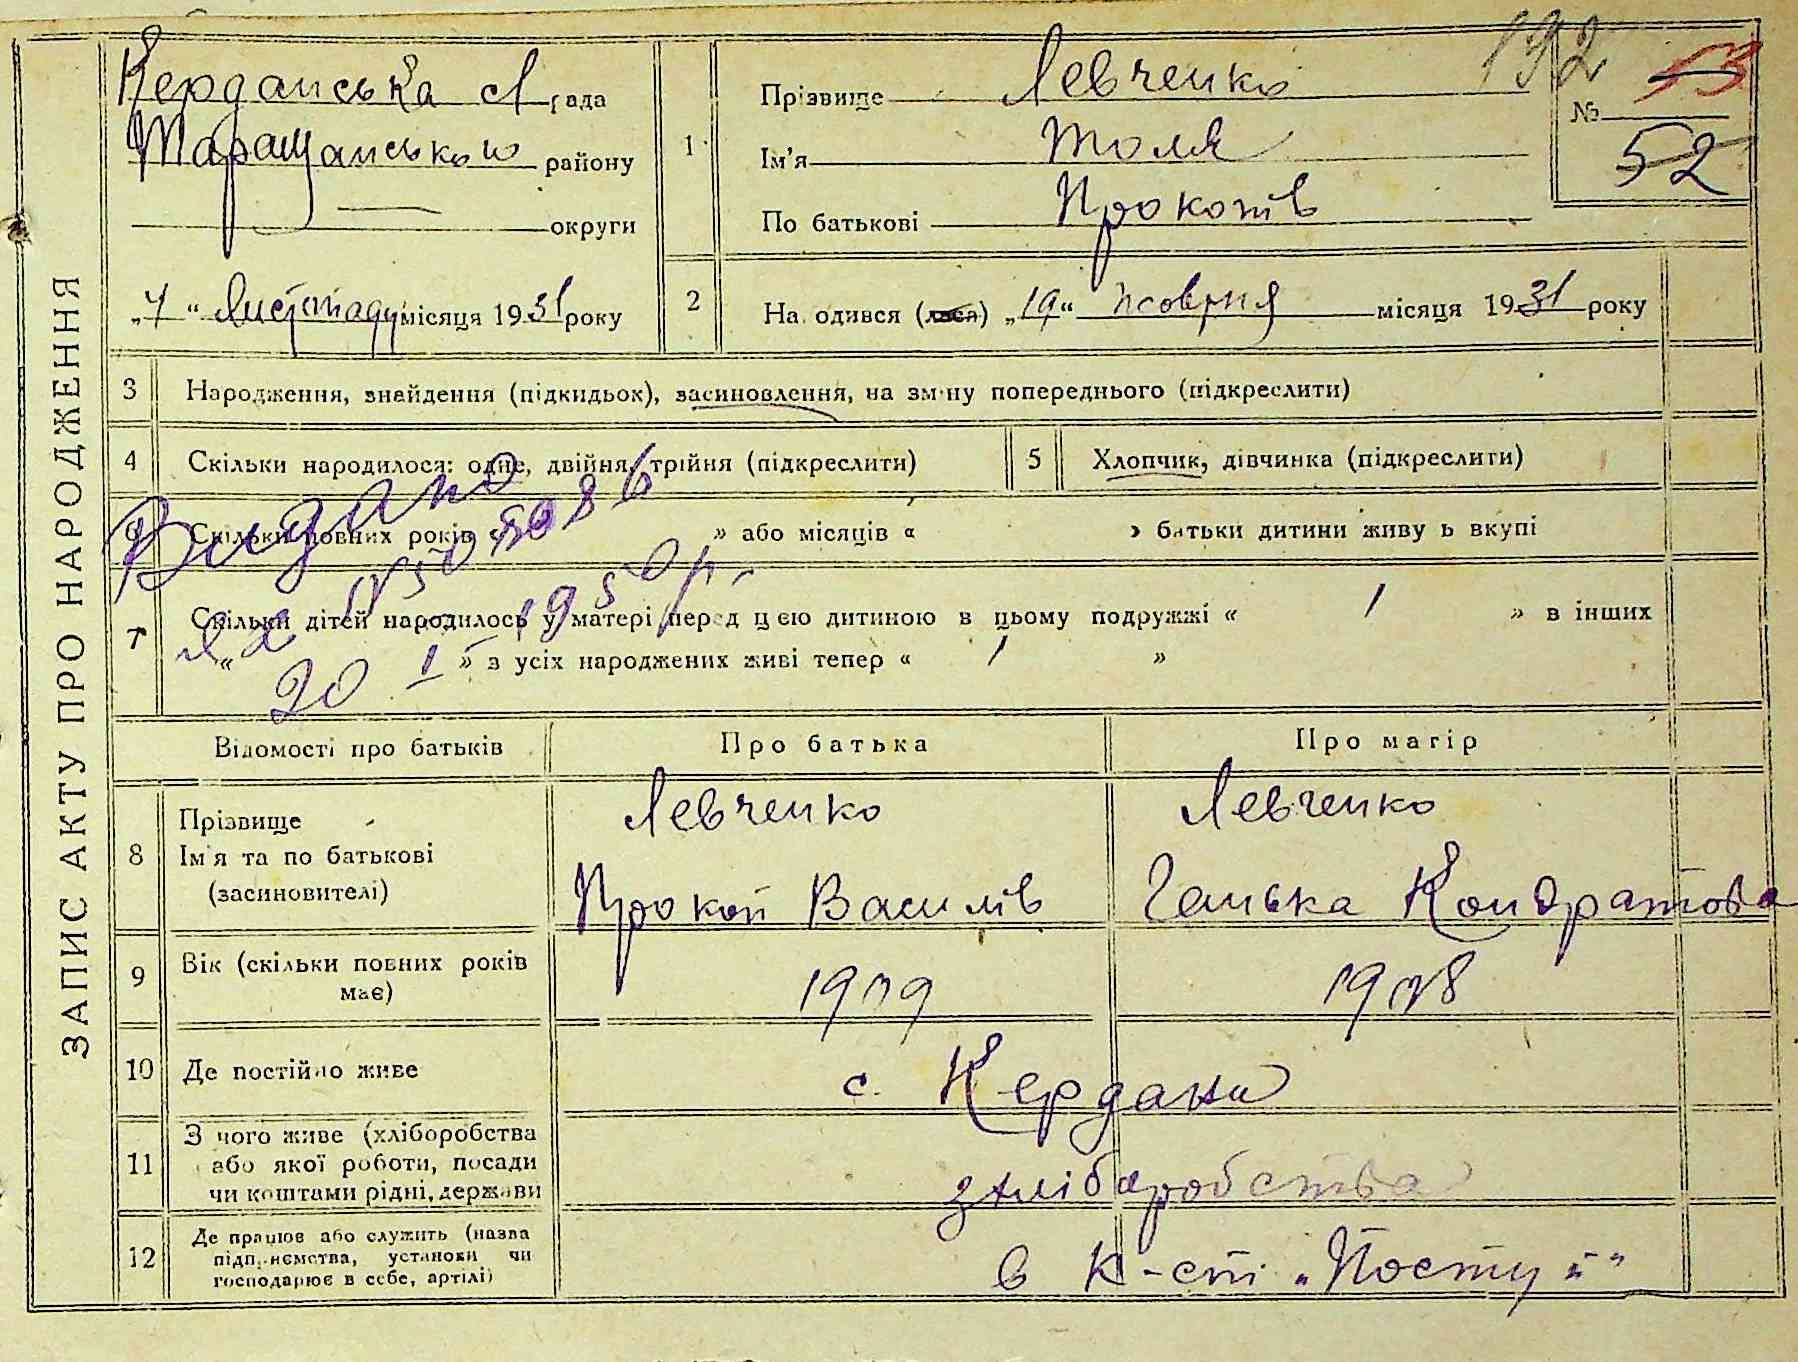 ЗАПИС АКТУ ПРО НАРОДЖЕННЯ
Керданська с/ рада
Таращанського району
округи
„7“ Листопаду місяця 1931 року
192
№ 53
52
1 Прізвище Левченко
Ім'я Толя
По батькові Прокопів
2 Народився (лася) „19“ жовтня місяця 1931 року
3 Народження, знайдення (підкидьок), засиновлення, на зміну попереднього (підкреслити)
4 Скільки народилося: одне, двійня, трійня (підкреслити)
5 Хлопчик, дівчинка (підкреслити)
6 Скільки повних років « » або місяців « » батьки дитини живуть вкупі
Видано
1950р.
20 І
7 Скільки дітей народилось у матері перед цією дитиною в цьому подружжі « 1 » в інших
« » з усіх народжених живі тепер « 1 »
Відомості про батьків Про батька Про матір
8 Прізвище Левченко Левченко
Ім'я та по батькові
(засиновителі) Прокоп Василів Ганька Кондратова
9 Вік (скільки повних років
має) 1909 1908
10 Де постійно живе с. Кердани
11 З чого живе (хліборобства
або якої роботи, посади
чи коштами рідні, держави з хліборобства
12 Де працює або служить (назва
підприємства, установи чи
господарює в себе, артілі) в к-сті „Поступ“